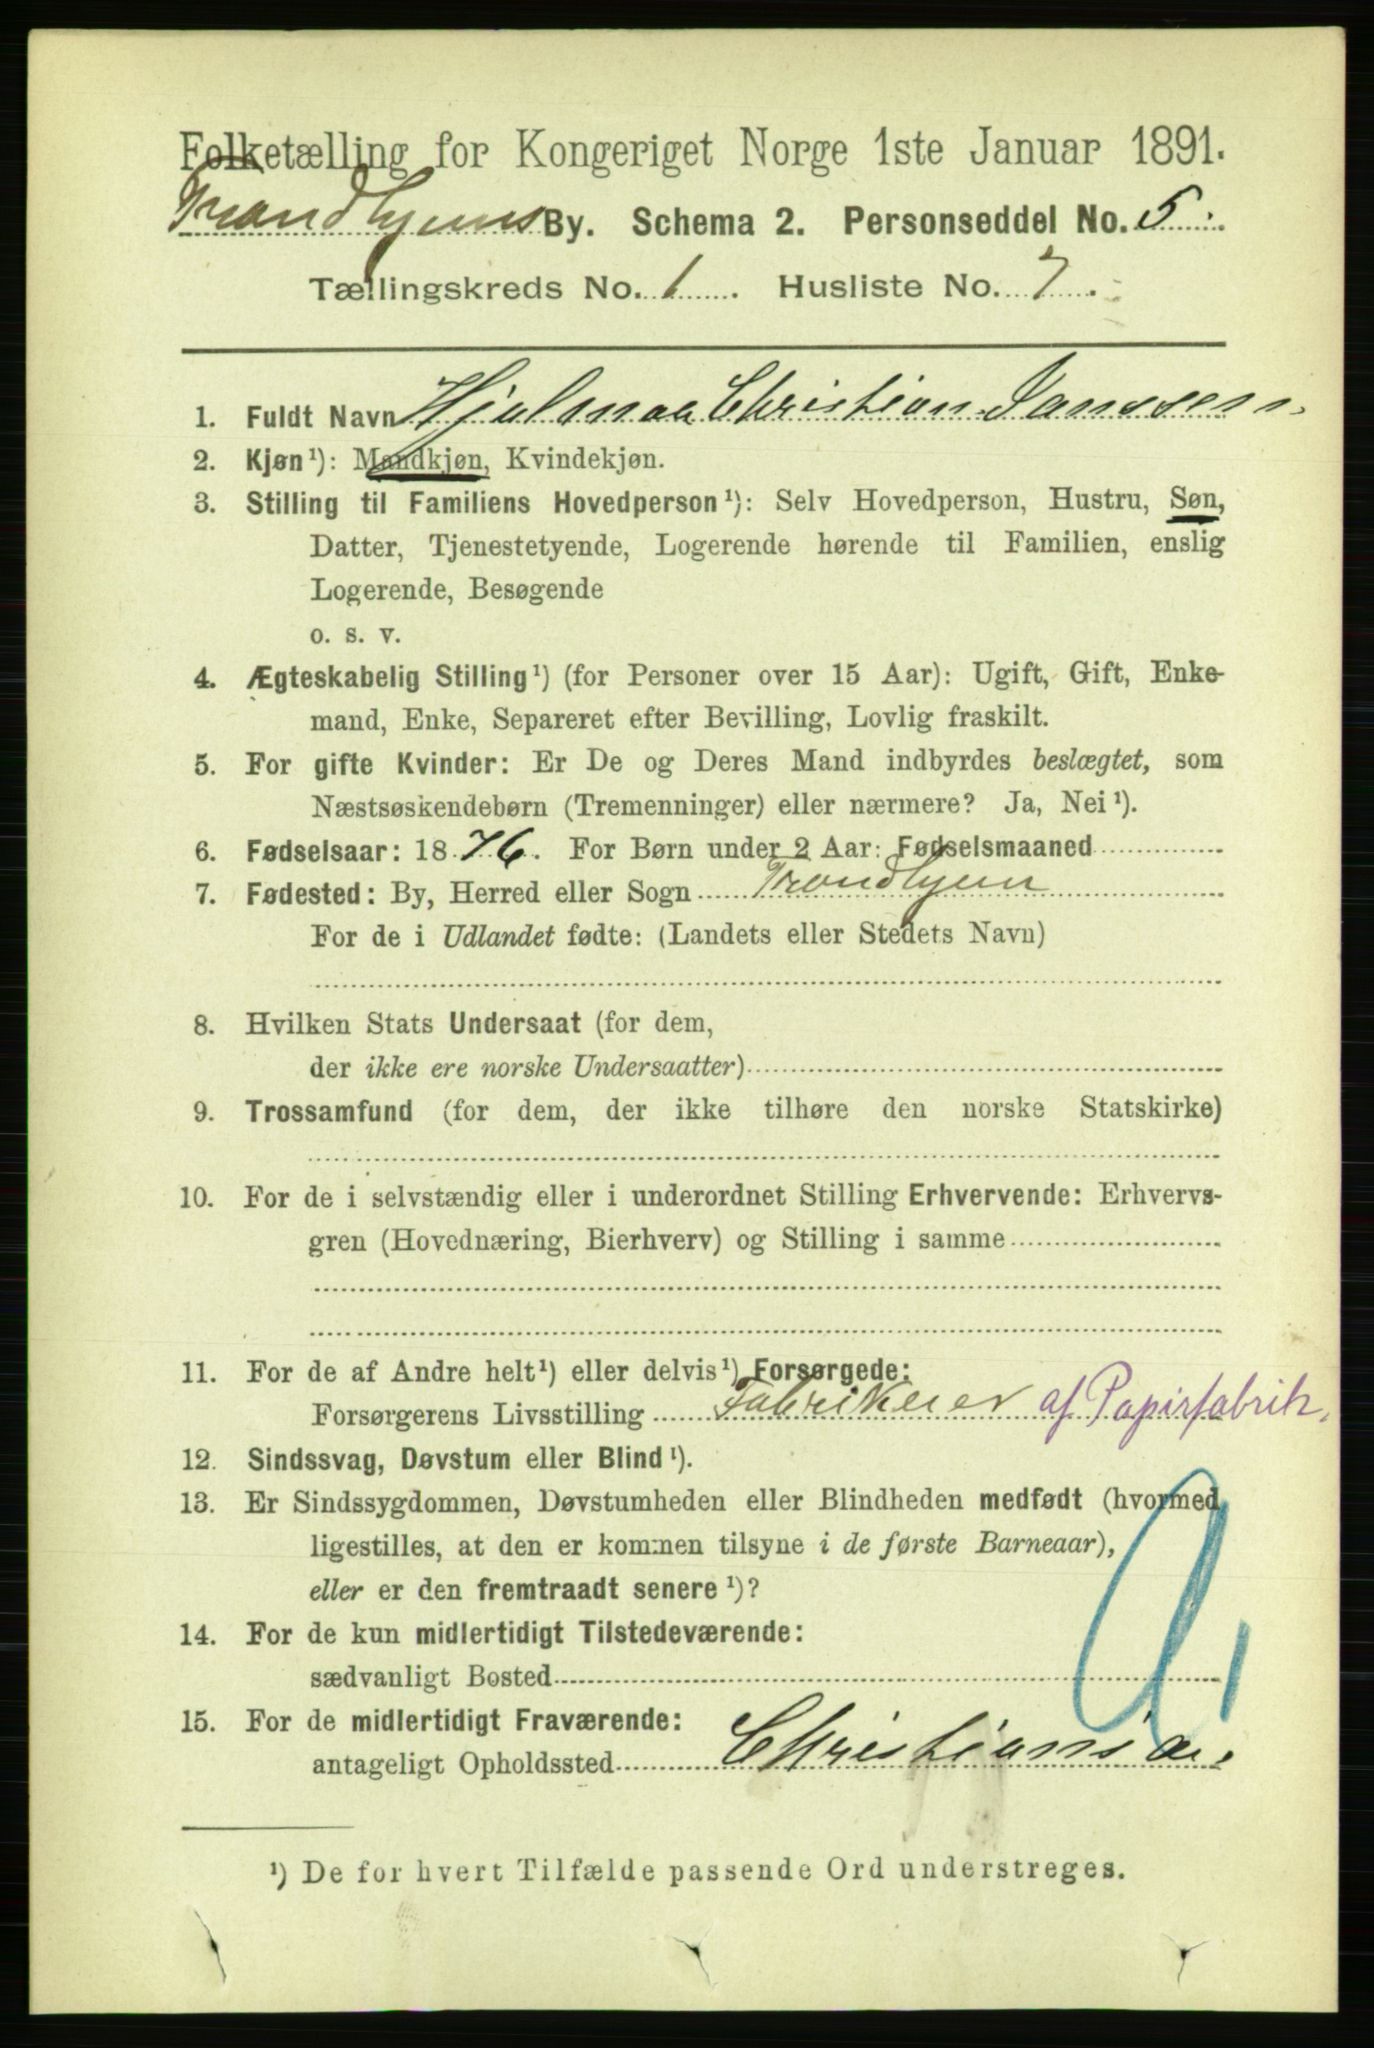 Folketælling for Kongeriget Norge 1ste Januar 1891.
Trondhjems By. Schema 2. Personseddel No. 5.
Tællingskreds No. 1. Husliste No. 7.
1. Fuldt Navn Hjalmar Christian Janssen.
2. Kjøn¹): Mandkjøn, Kvindekjøn.
3. Stilling til Familiens Hovedperson¹): Selv Hovedperson, Hustru, Søn,
Datter, Tjenestetyende, Logerende hørende til Familien, enslig
Logerende, Besøgende
o. s. v.
4. Ægteskabelig Stilling¹) (for Personer over 15 Aar): Ugift, Gift, Enke-
mand, Enke, Separeret efter Bevilling, Lovlig fraskilt.
5. For gifte Kvinder: Er De og Deres Mand indbyrdes beslægtet, som
Næstsøskendebørn (Tremenninger) eller nærmere? Ja, Nei¹).
6. Fødselsaar: 1876. For Børn under 2 Aar: Fødselsmaaned
7. Fødested: By, Herred eller Sogn Trondhjem
For de i Udlandet fødte: (Landets eller Stedets Navn)
8. Hvilken Stats Undersaat (for dem,
der ikke ere norske Undersaatter)
9. Trossamfund (for dem, der ikke tilhøre den norske Statskirke)
10. For de i selvstændig eller i underordnet Stilling Erhvervende: Erhvervs-
gren (Hovednæring, Bierhverv) og Stilling i samme
11. For de af Andre helt¹) eller delvis¹) Forsørgede:
Forsørgerens Livsstilling Fabrikeier af Papirfabrik.
12. Sindssvag, Døvstum eller Blind¹).
13. Er Sindssygdommen, Døvstumheden eller Blindheden medfødt (hvormed
ligestilles, at den er kommen tilsyne i de første Barneaar),
eller er den fremtraadt senere¹)?
14. For de kun midlertidigt Tilstedeværende:
sædvanligt Bosted
15. For de midlertidigt Fraværende:
antageligt Opholdssted Christiania.
¹) De for hvert Tilfælde passende Ord understreges.